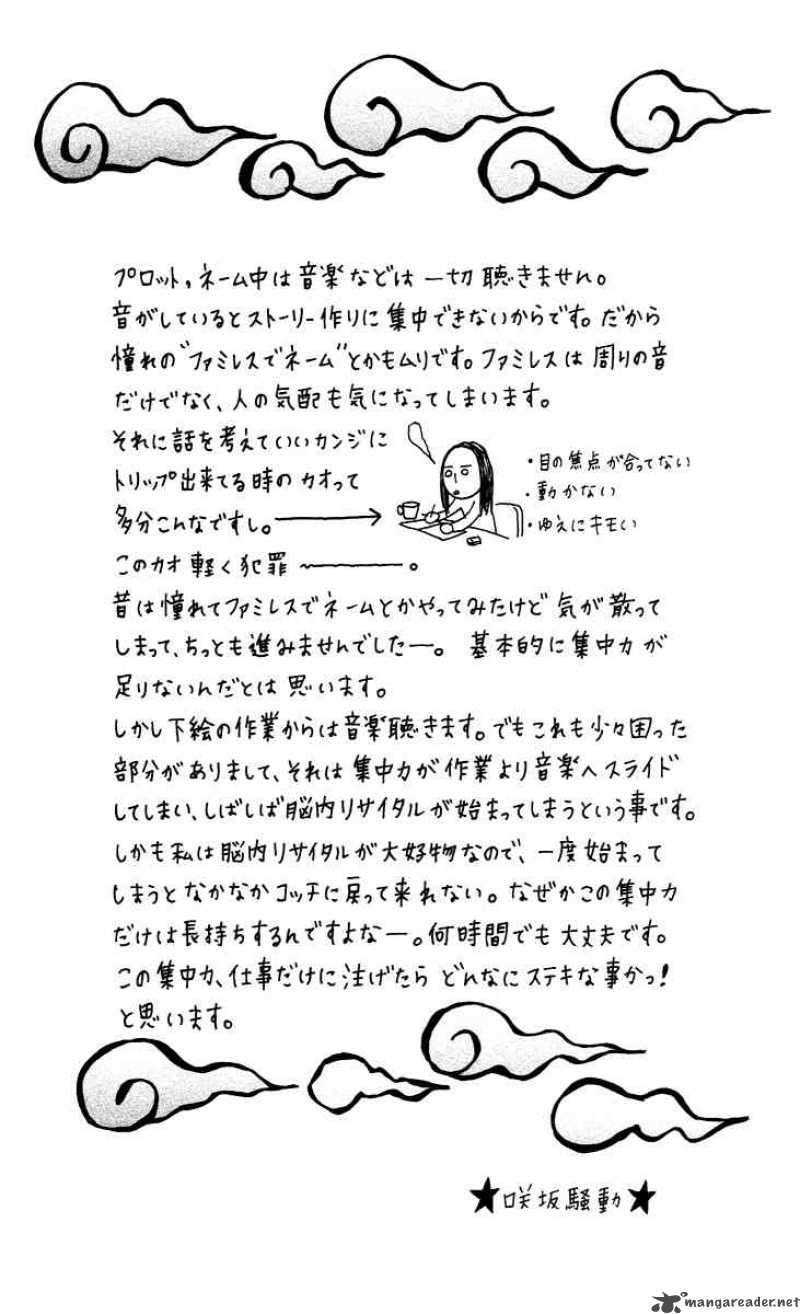 プロット,ネーム中は音楽などは一切聴きません。
音がしているとストーリー作りに集中できないからです。だから
憧れの"ファミレスでネーム"とかもムリです。ファミレスは周りの音
だけでなく、人の気配も気になってしまいます。
それに話を考えていいカンジに
トリップ出来てる時のカオって
多分こんなですし。
・目の焦点が合ってない
・動かない
・ゆえにキモい
このカオ軽く犯罪――。
昔は憧れてファミレスでネームとかやってみたけど気が散って
しまって、ちっとも進みませんでしたー。 基本的に集中力が
足りないんだとは思います。
しかし下絵の作業からは音楽聴きます。でもこれも少々困った
部分がありまして、それは集中力が作業より音楽へスライド
してしまい、しばしば脳内リサイタルが始まってしまうという事です。
しかも私は脳内リサイタルが大好物なので、一度始まって
しまうとなかなかコッチに戻って来れない。なぜかこの集中力
だけは長持ちするんですよなー。何時間でも大丈夫です。
この集中力、仕事だけに注げたらどんなにステキな事かっ!
と思います。
★咲坂騒動★
mangareader.net